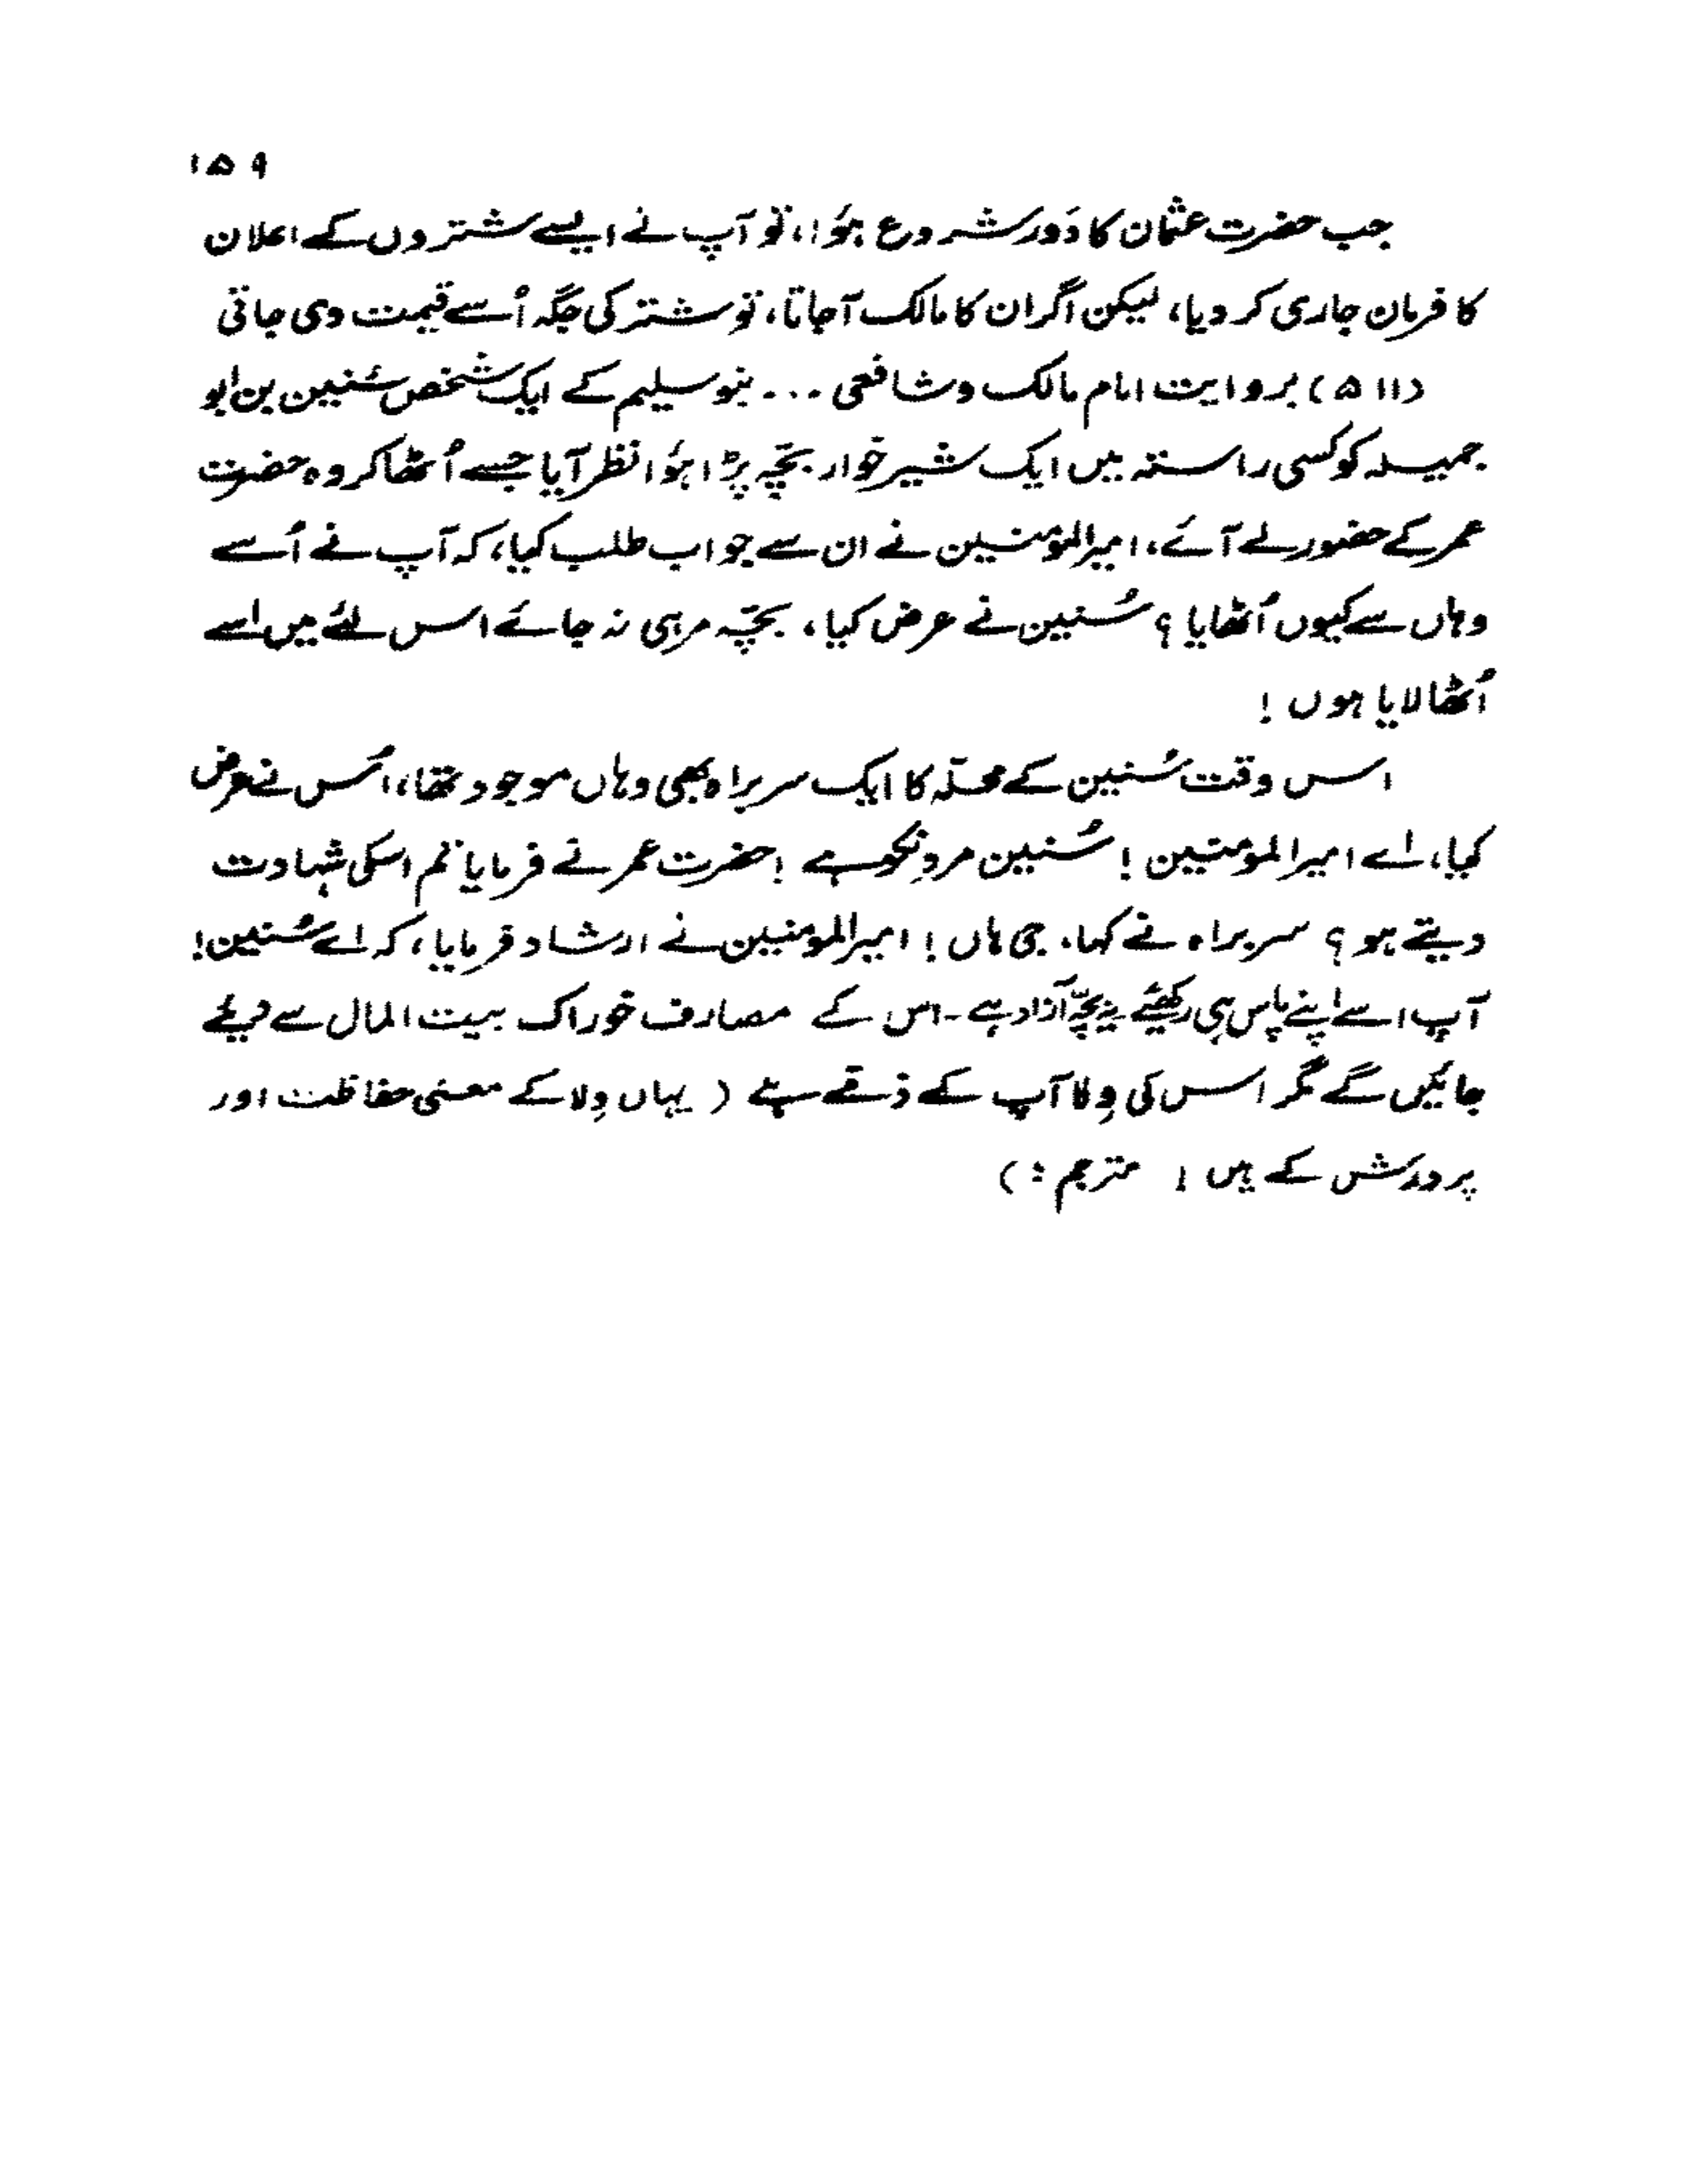 ۱۵۹
جب حضرت عثمان کا دَور شروع ہؤا، تو آپ نے ایسے شتروں کے اعلان
کا فرمان جاری کر دیا، لیکن اگر ان کا مالک آجاتا، تو شتر کی جگہ اُسے قیمت دی جاتی
(۵۱۱) بروایت امام مالک و شافعی ... بنو سلیم کے ایک شخص سُنین بن ابو
جمیلہ کو کسی راستہ میں ایک شیر خوار بچّہ پڑا ہؤا نظر آیا جسے اُٹھا کر وہ حضرت
عمر کے حضور لے آئے، امیرالمؤمنین نے ان سے جواب طلب کیا، کہ آپ نے اُسے
وہاں سے کیوں اُٹھایا ؟ سُنین نے عرض کیا، بچّہ مر ہی نہ جائے اس لئے میں اسے
اُٹھا لایا ہوں !
اس وقت سُنین کے محلّہ کا ایک سربراہ بھی وہاں موجود تھا، اُس نے عرض
کیا، اے امیرالمومنین ! سُنین مردِ نکو ہے ! حضرت عمر نے فرمایا تم اسکی شہادت
دیتے ہو ؟ سربراہ نے کہا، جی ہاں ! امیرالمومنین نے ارشاد فرمایا، کہ اے سُنین !
آپ اسے اپنے پاس ہی رکھیئے یہ بچّہ آزاد ہے ۔ اس کے مصارف خوراک بیت المال سے دیئے
جائیں گے مگر اس کی وِلا آپ کے ذمّے ہے ( یہاں وِلا کے معنی حفاظت اور
پرورش کے ہیں ! مترجم : )